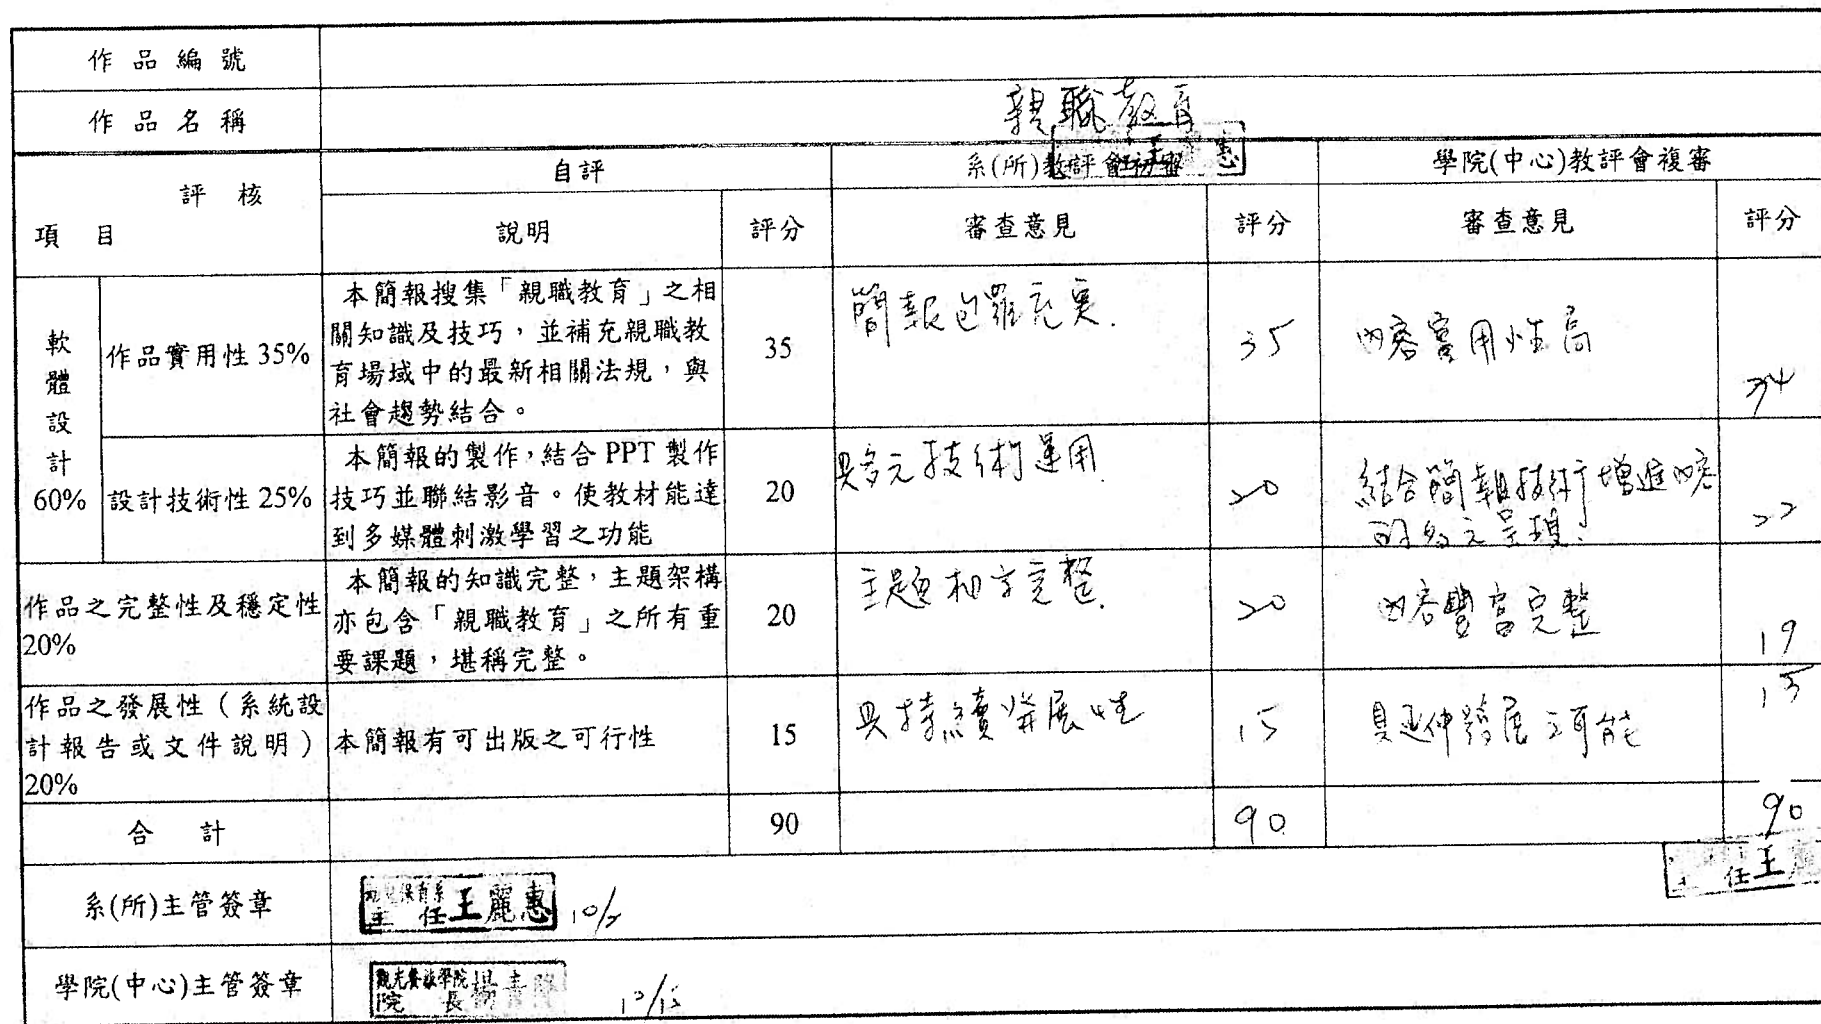 作品編號
作品名稱 親職教育
評核 自評 系(所)教評會初審 學院(中心)教評會複審
項目 說明 評分 審查意見 評分 審查意見 評分
軟體設計60%
作品實用性 35%
本簡報搜集「親職教育」之相
關知識及技巧，並補充親職教
育場域中的最新相關法規，與
社會趨勢結合。
35
簡報包羅充実.
35
內容實用性高
34
設計技術性 25%
本簡報的製作，結合 PPT 製作
技巧並聯結影音。使教材能達
到多媒體刺激學習之功能
20
具多元技術運用.
20
結合簡報技術增進內容
的多元呈現.
22
作品之完整性及穩定性
20%
本簡報的知識完整，主題架構
亦包含「親職教育」之所有重
要課題，堪稱完整。
20
主題相當完整.
20
內容豐富完整
19
作品之發展性（系統設
計報告或文件說明）
20%
本簡報有可出版之可行性
15
具持續發展性
15
具延伸發展之可能
15
合計 90 90 90
系(所)主管簽章
主任王麗惠
學院(中心)主管簽章
觀光餐旅學院
院長